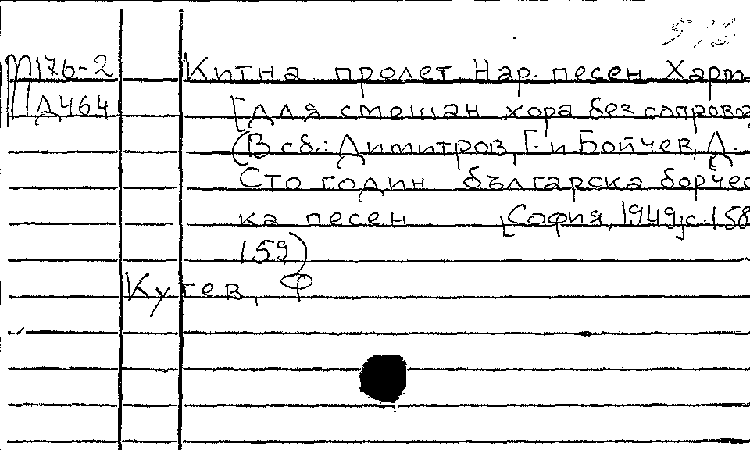 П176-2 Китна пролет. Нар. песен Харм.
Д464 [для смешан хора без сопровож
(В сб.: Димитров, Г. и Бойчев, Д.
Сто годин българска борчес
ка песен [София, 1949, с. 158
159)
Кутев, Ф